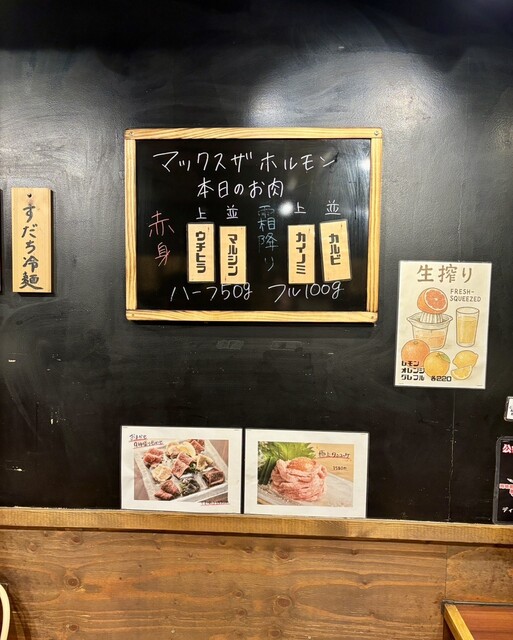 すだち冷麺
マックスザホルモン
本日のお肉
赤身
上 並
ウチヒラ
マルシン
霜降り
上 並
カイノミ
カルビ
ハーフ50g フル100g
生搾り
FRESH-
SQUEEZED
レモン
オレンジ
グレフル 各220